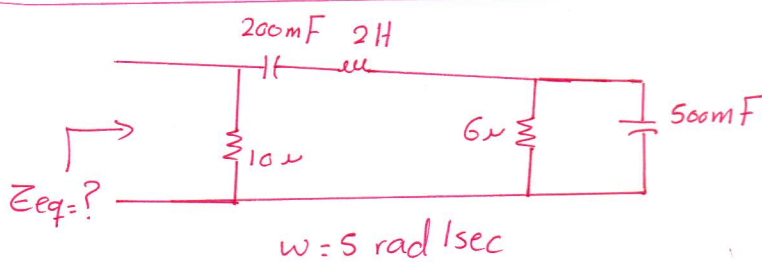 200mF 2H
6Ω 500mF
10Ω
Zeq=?
w=5 rad/sec